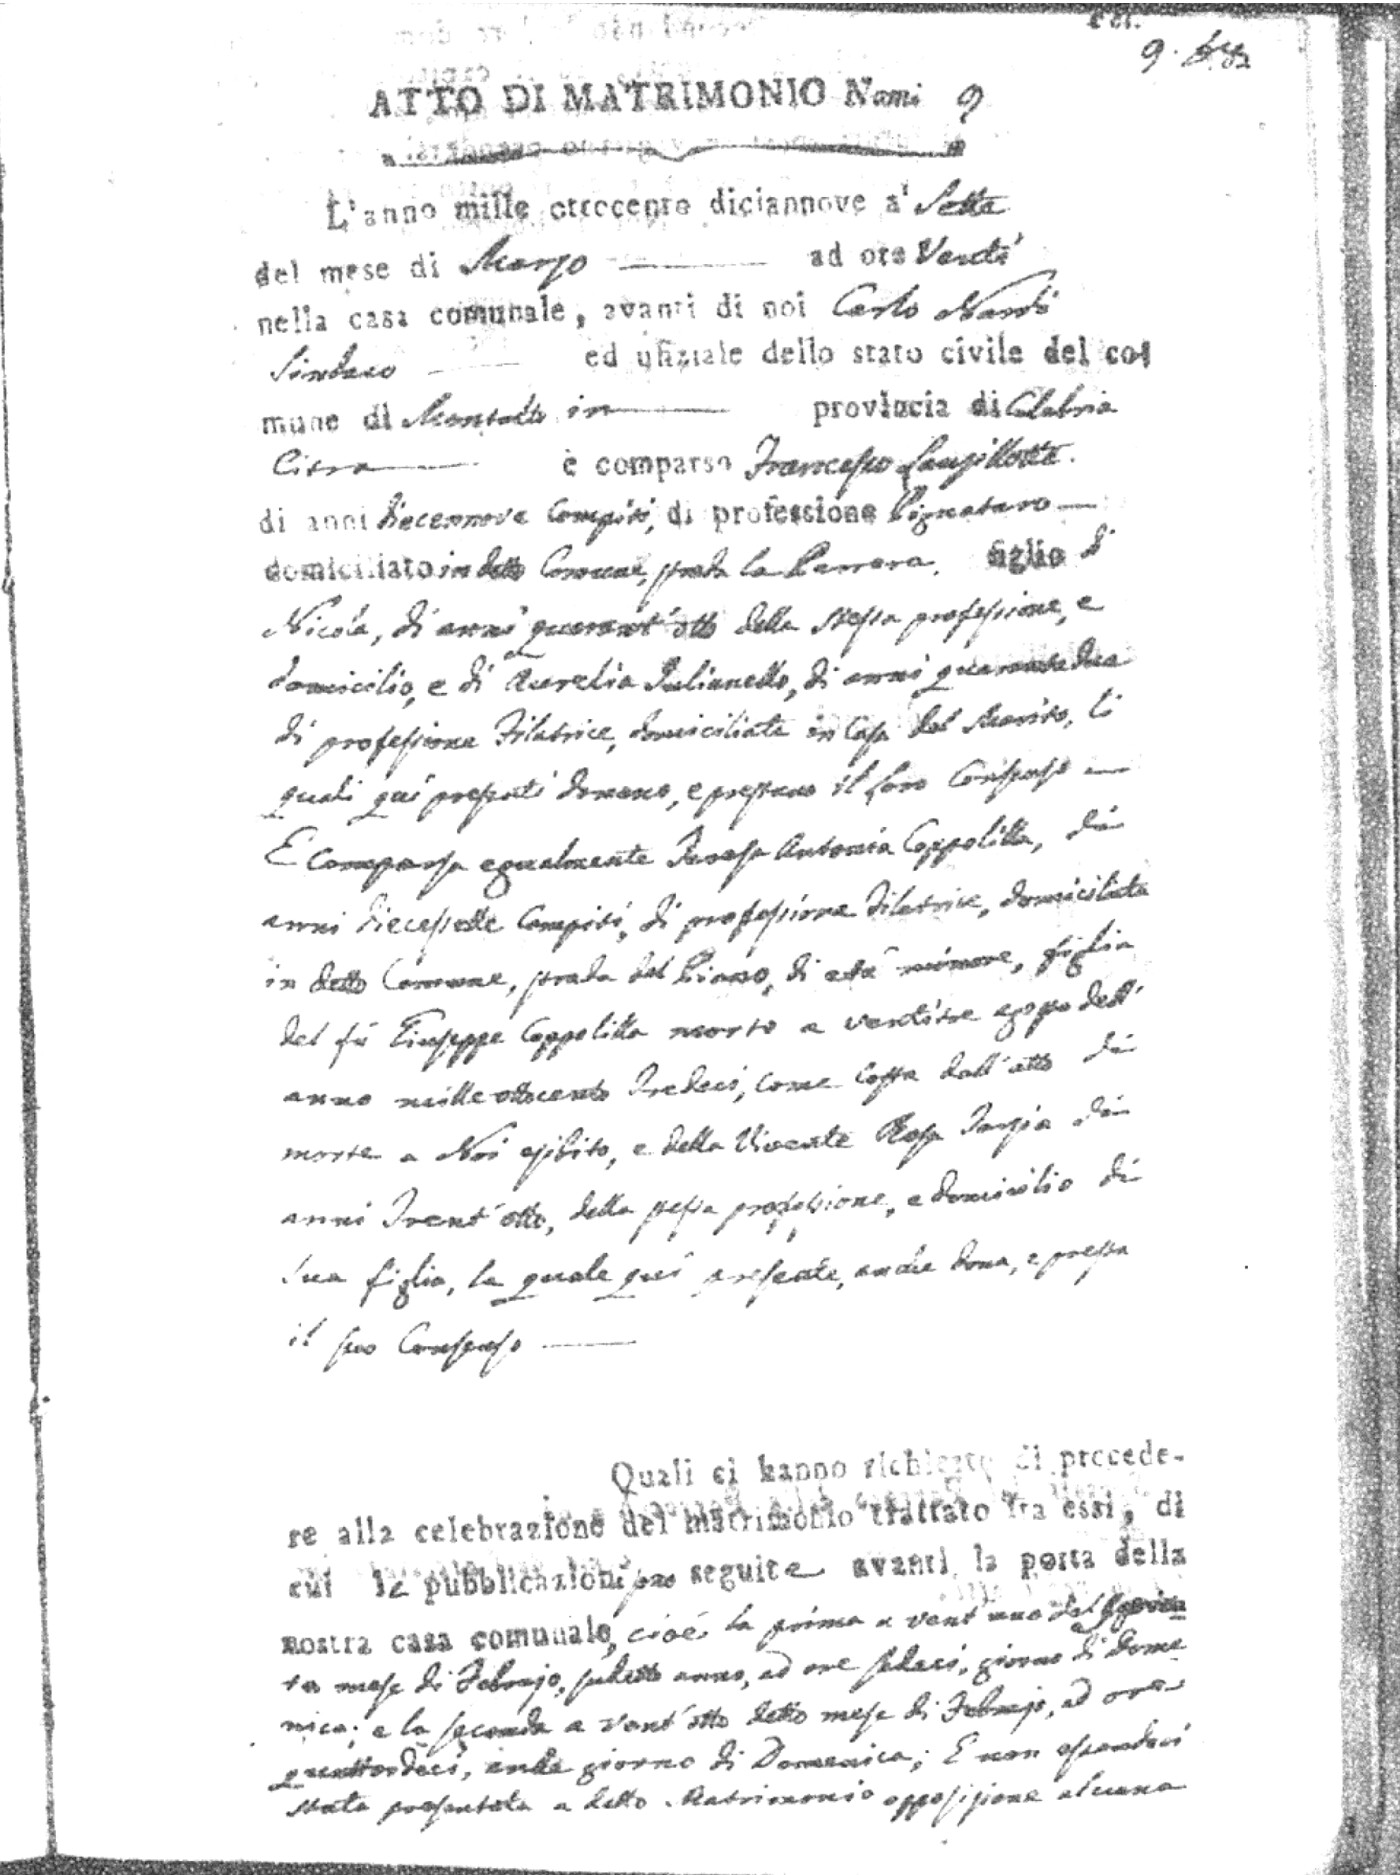 9.
ATTO DI MATRIMONIO Num. 9
L'anno mille ottocento diciannove a' Sette
del mese di Marzo ad ore Venti
nella casa comunale, avanti di noi Carlo Nardi
Sindaco ed ufiziale dello stato civile del co-
mune di Montalto in provincia di Calabria
Citra è comparso Francesco
di anni diecennove compiti, di professione Pignataro
domiciliato in detto Comune, strada la figlio di
Nicola, di anni quarant'otto della stessa professione, e
domicilio, e di Aurelia Julianello, di anni quarantadue
di professione Filatrice, domiciliata in Casa del Marito, li
quali quì presenti donano, e prestano il loro Consenso
E Comparsa egualmente Teresa Antonia Coppolilla, di
anni diecessette compiti, di professione Filatrice, domiciliata
in detto Comune, strada del Piano, di età minore, figlia
del fù Giuseppe Coppolilla morto a ventitre agosto dell'
anno mille ottocento Tredeci, come costa dall'atto di
morte a Noi esibito, e della Vivente Rosa Tarsia di
anni Trent'otto, della stessa professione, e domicilio di
sua figlia, la quale quì presente, anche dona, e presta
il suo Consenso
Quali ci hanno richiesto di procede-
re alla celebrazione del matrimonio trattato fra essi, di
cui le pubblicazioni sono seguite avanti la porta della
nostra casa comunale, cioè: la prima a vent'uno del
to mese di Febrajo, sudetto anno, ad ore sedeci, giorno di Dome
nica; e la seconda a vent'otto detto mese di Febrajo, ad ore
quattordeci, anche giorno di Domenica; E non essendoci
stata presentata a detto Matrimonio opposizione alcuna